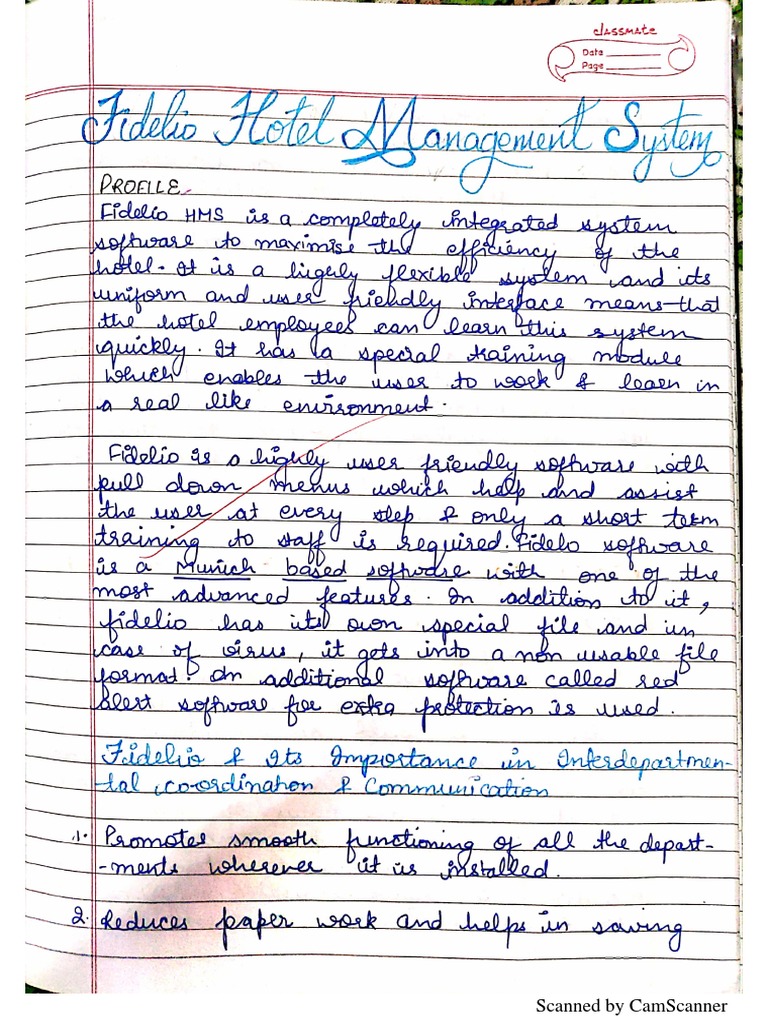 classmate
Date
Page
Fidelio Hotel Management System
PROFILE
Fidelio HMS is a completely integrated system
software to maximise the efficiency of the
hotel. It is a higely flexible system and its
uniform and user friendly interface means that
the hotel employees can learn this system
quickly. It has a special training module
which enables the user to work & learn in
a real like environment.
Fidelio is a highly user friendly software with
pull down menus which help and assist
the user at every step & only a short term
training to staff is required. Fidelo software
is a Munich based software with one of the
most advanced features. In addition to it,
fidelio has its own special file and in
case of virus, it gets into a non usable file
format. An additional software called red
alert software for extra protection is used.
Fidelio & Its Importance in Interdepartmen-
-tal co-ordination & Communication
1. Promotes smooth functioning of all the depart-
-ments wherever it is installed.
2. Reduces paper work and helps in saving
Scanned by CamScanner